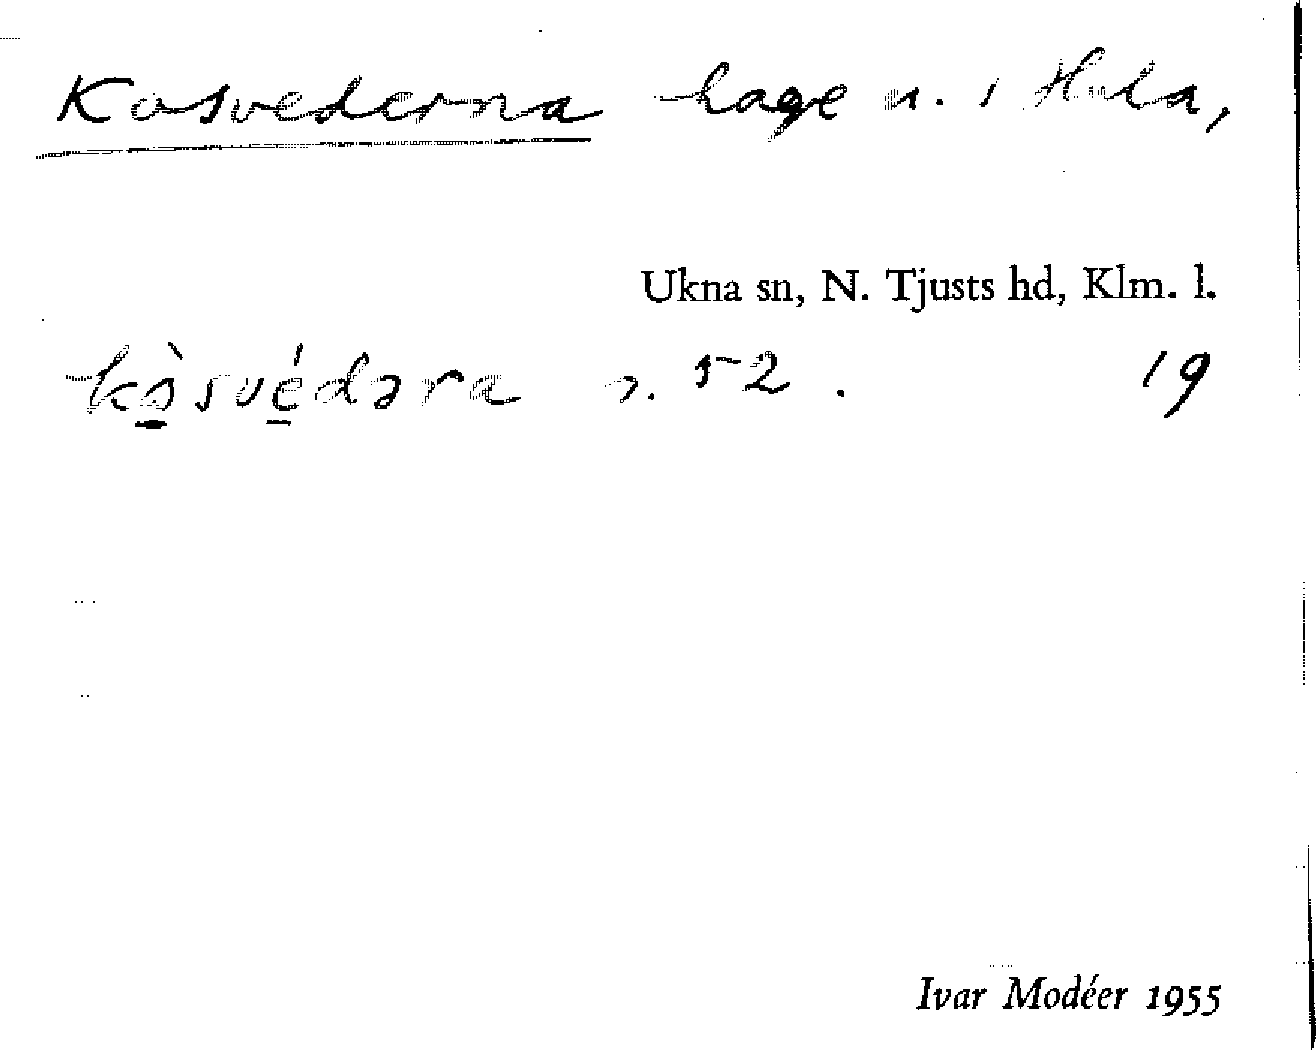 Kosvederna hage n. i Hula,
Ukna sn, N. Tjusts hd, Klm. l.
kò̱své̱dəra s. 52. 19
Ivar Modéer 1955